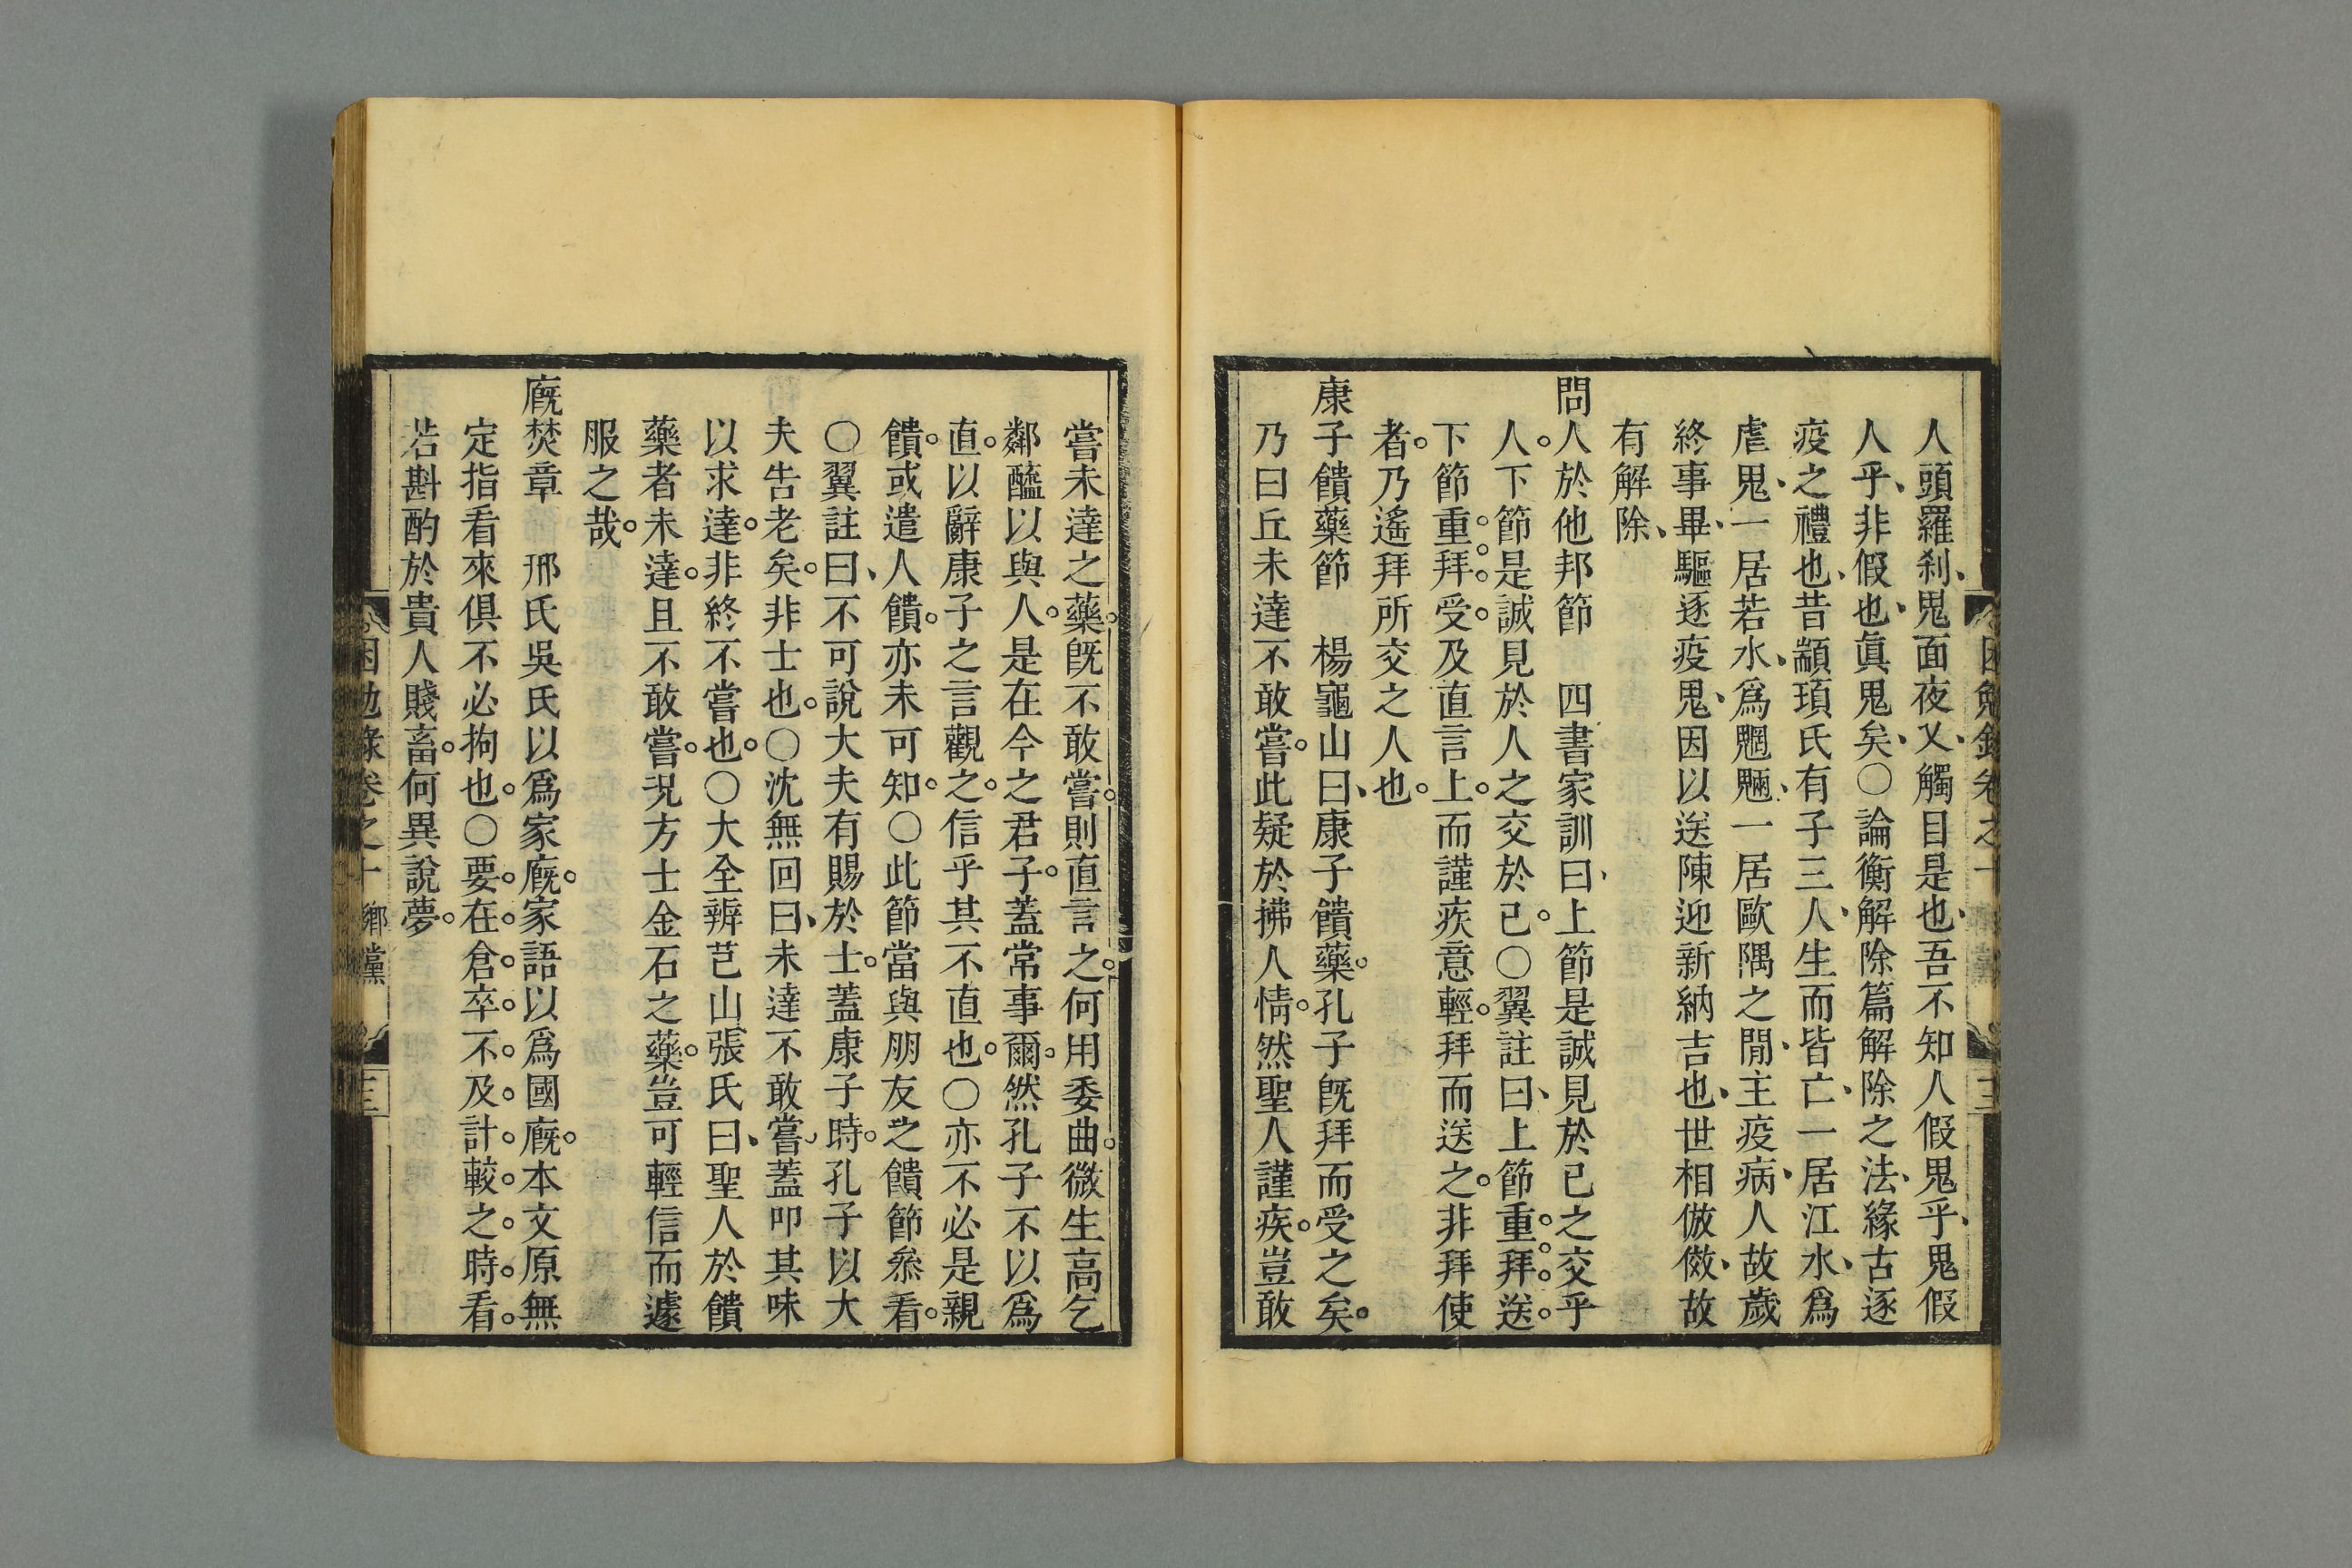 人頭羅刹鬼面夜叉、觸目是也、吾不知人假鬼乎、鬼假
人乎、非假也、眞鬼矣、○論衡解除篇解除之法、緣古逐
疫之禮也、昔顓頊氏有子三人、生而皆亡、一居江水、爲
虐鬼、一居若水、爲魍魎、一居歐隅之閒、主疫病、人故歲
終事畢、驅逐疫鬼、因以送陳迎新納吉也、世相倣傚、故
有解除、
問人於他邦節　四書家訓曰、上節是誠見於已之交乎
人。下節是誠見於人之交於己。○翼註曰、上節重。拜。送。
下節重。拜。受。及直言上。而謹疾意輕。拜而送之。非拜使
者。乃遙拜所交之人也。
康子饋藥節　楊龜山曰、康子饋藥。孔子旣拜而受之矣。
乃曰丘未達不敢嘗。此疑於拂人情。然聖人謹疾。豈敢
嘗未達之藥。旣不敢嘗。則直言之。何用委曲。微生高乞
鄰醯以與人。是在今之君子。蓋常事爾。然孔子不以爲
直。以辭康子之言觀之。信乎其不直也。○亦不必是親
饋。或遣人饋。亦未可知。○此節當與朋友之饋節叅看。
○翼註曰、不可說大夫有賜於士。蓋康子時。孔子以大
夫告老矣。非士也。○沈無回曰、未達不敢嘗、蓋叩其味
以求達。非終不嘗也。○大全辨芑山張氏曰、聖人於饋
藥者未達。且不敢嘗。况方士金石之藥。豈可輕信而遽
服之哉。
廐焚章　邢氏吳氏以爲家廐。家語以爲國廐。本文原無
定指看來俱不必拘也。○要。在。倉。卒。不。及。計。較。之。時。看。
若斟酌於貴人賤畜。何異說夢。
困勉錄卷之十 鄉黨 三